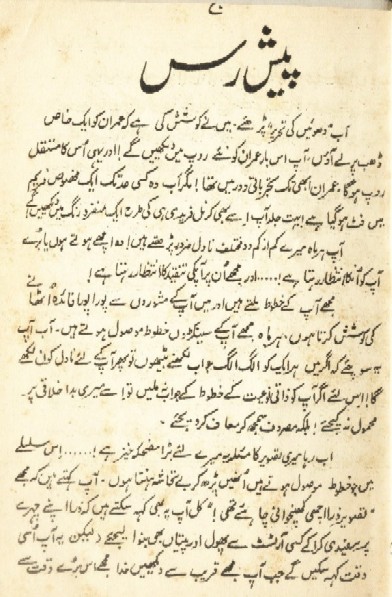 ۷
پیش رس
آپ "دھوئیں کی تحریر" پڑھئے۔ میں نے کوشش کی ہے کہ عمران کو ایک خاص
ڈھب پر لے آؤں، آپ اس بار عمران کو نئے روپ میں دیکھیں گے! اور یہی اُس کا مستقل
روپ ہوگا، عمران ابھی تک تجرباتی دور میں تھا! مگر اب وہ کسی حد تک ایک مخصوص فریم
میں فٹ ہو گیا ہے! بہت جلد آپ اسے بھی کرنل فریدی ہی کی طرح ایک منفرد رنگ میں دیکھیں گے!
آپ ہر ماہ میرے کم از کم دو مختلف ناول ضرور پڑھتے ہیں! وہ اچھے ہوتے ہوں یا بُرے
آپ کو اُن کا انتظار رہتا ہے!..... اور مجھے اُن پر آپکی تنقید کا انتظار رہتا ہے!
مجھے آپ کے خطوط ملتے ہیں اور میں آپ کے مشوروں سے پورا پورا فائدہ اُٹھانے
کی کوشش کرتا ہوں، ہر ماہ مجھے آپ کے سینکڑوں خطوط موصول ہوتے ہیں۔ اب آپ
یہ سوچئے کہ اگر میں ہر ایک کو الگ الگ جواب لکھنے بیٹھوں تو پھر آپ کے لئے ناول کون لکھے
گا! اس لئے اگر آپ کو ذاتی نوعیت کے خطوط کے جواب نہ ملیں تو اسے میری بد اخلاقی پر
محمول نہ کیجئے! بلکہ مصروف سمجھ کر معاف کر دیجئے۔
اب رہا میری تصویر کا مسئلہ یہ میرے لئے بڑا مضحکہ خیز ہے!....... اس سلسلے
میں جو خطوط موصول ہوتے ہیں اُنہیں پڑھ کر بے تحاشہ ہنستا ہوں۔ آپ کہتے ہیں کہ مجھے
"تصویر ذرا اچھی کھنچوانی چاہئے تھی!" کل آپ یہ بھی کہہ سکتے ہیں کہ ذرا اپنے چہرے
پر سفیدی کرا کے کسی آرٹسٹ سے پھول اور پتیاں بھی بنوا لیجئے۔ لیکن یہ آپ اُسی
وقت کہہ سکیں گے جب آپ مجھے قریب سے دیکھیں خدا مجھے اس بُرے وقت سے